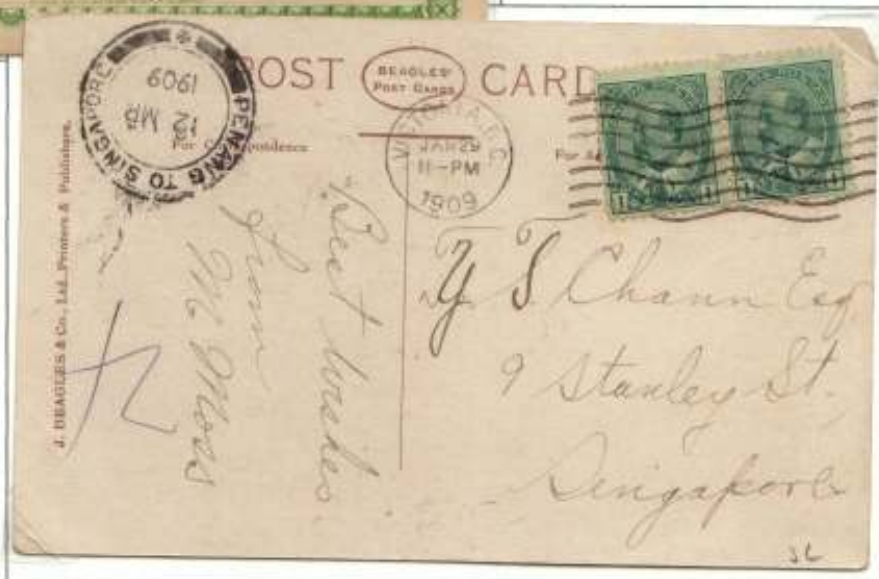 POST CARD
BEAGLES'
POST CARDS
PENANG TO SINGAPORE
12 MR
1909
VICTORIA, B.C.
JAN 29
11-PM
1909
For Correspondence
For
1 1
1 1
J. BEAGLES & Co., Ltd. Printers & Publishers.
Best Wishes
from
M Moss
Y S Chann Esq
9 Stanley St.
Singapore
SL